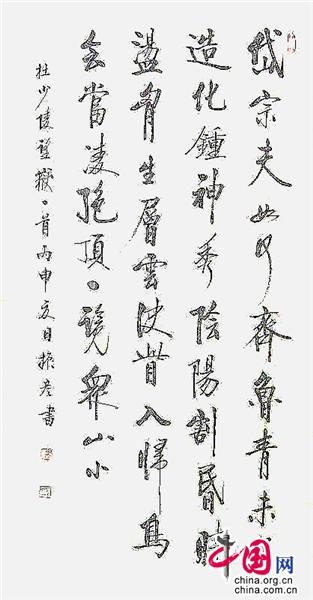 岱宗夫如何齊魯青未了
造化鍾神秀陰陽割昏曉
盪胷生層雲決眥入歸鳥
会當凌絕頂一覽眾山小
杜少陵望嶽一首丙申夏日振書
中国网
china.org.cn
china.org.cn